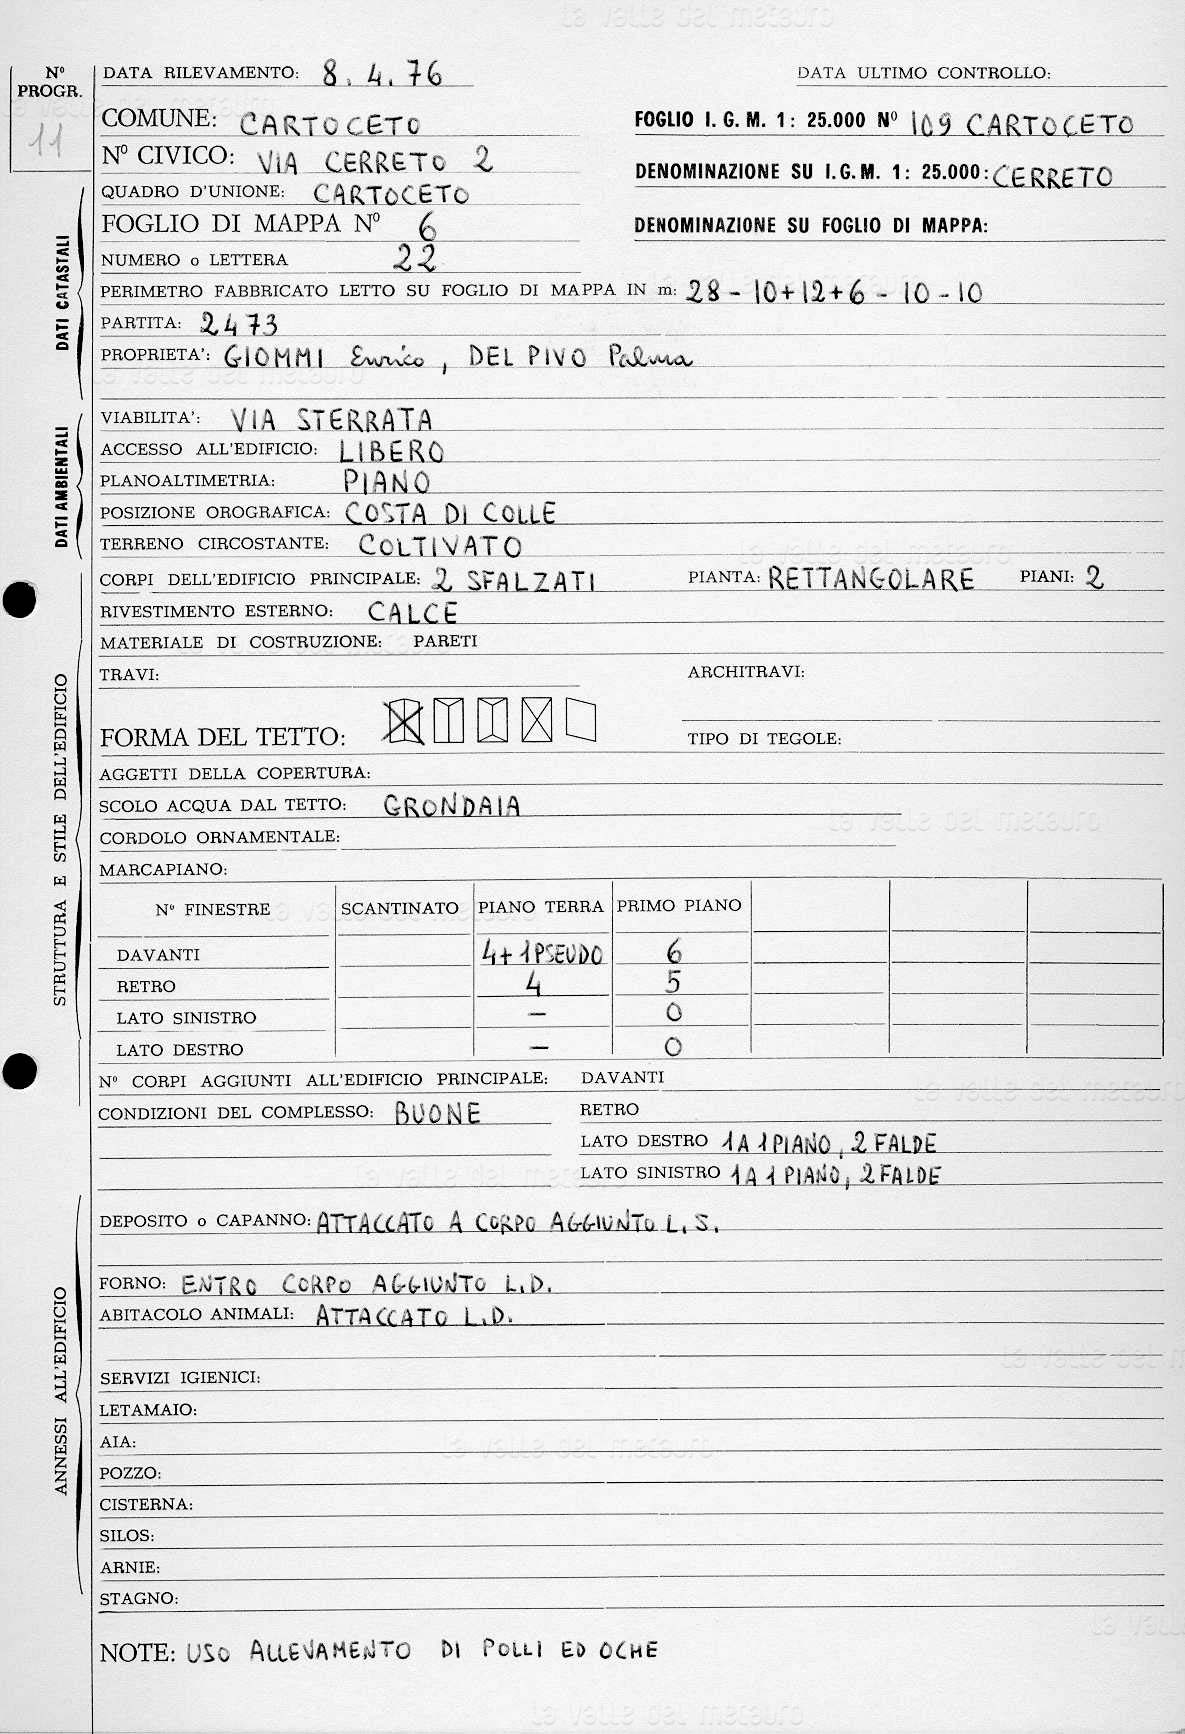 la valle del metauro
Nº PROGR.
11
DATA RILEVAMENTO: 8.4.76
DATA ULTIMO CONTROLLO:
COMUNE: CARTOCETO
FOGLIO I. G. M. 1: 25.000 Nº 109 CARTOCETO
Nº CIVICO: VIA CERRETO 2
DENOMINAZIONE SU I.G.M. 1: 25.000: CERRETO
QUADRO D'UNIONE: CARTOCETO
FOGLIO DI MAPPA Nº 6
DENOMINAZIONE SU FOGLIO DI MAPPA:
NUMERO o LETTERA 22
DATI CATASTALI
PERIMETRO FABBRICATO LETTO SU FOGLIO DI MAPPA IN m: 28 - 10+12+6 - 10 - 10
PARTITA: 2473
PROPRIETA': GIOMMI Enrico, DEL PIVO Palma
DATI AMBIENTALI
VIABILITA': VIA STERRATA
ACCESSO ALL'EDIFICIO: LIBERO
PLANOALTIMETRIA: PIANO
POSIZIONE OROGRAFICA: COSTA DI COLLE
TERRENO CIRCOSTANTE: COLTIVATO
STRUTTURA E STILE DELL'EDIFICIO
CORPI DELL'EDIFICIO PRINCIPALE: 2 SFALZATI PIANTA: RETTANGOLARE PIANI: 2
RIVESTIMENTO ESTERNO: CALCE
MATERIALE DI COSTRUZIONE: PARETI
TRAVI: ARCHITRAVI:
FORMA DEL TETTO: TIPO DI TEGOLE:
AGGETTI DELLA COPERTURA:
SCOLO ACQUA DAL TETTO: GRONDAIA
CORDOLO ORNAMENTALE:
MARCAPIANO:
Nº FINESTRE SCANTINATO PIANO TERRA PRIMO PIANO
DAVANTI 4+1PSEUDO 6
RETRO 4 5
LATO SINISTRO – 0
LATO DESTRO – 0
Nº CORPI AGGIUNTI ALL'EDIFICIO PRINCIPALE: DAVANTI
CONDIZIONI DEL COMPLESSO: BUONE RETRO
LATO DESTRO 1 A 1 PIANO, 2 FALDE
LATO SINISTRO 1 A 1 PIANO, 2 FALDE
ANNESSI ALL'EDIFICIO
DEPOSITO o CAPANNO: ATTACCATO A CORPO AGGIUNTO L.S.
FORNO: ENTRO CORPO AGGIUNTO L.D.
ABITACOLO ANIMALI: ATTACCATO L.D.
SERVIZI IGIENICI:
LETAMAIO:
AIA:
POZZO:
CISTERNA:
SILOS:
ARNIE:
STAGNO:
NOTE: USO ALLEVAMENTO DI POLLI ED OCHE
la valle del metauro